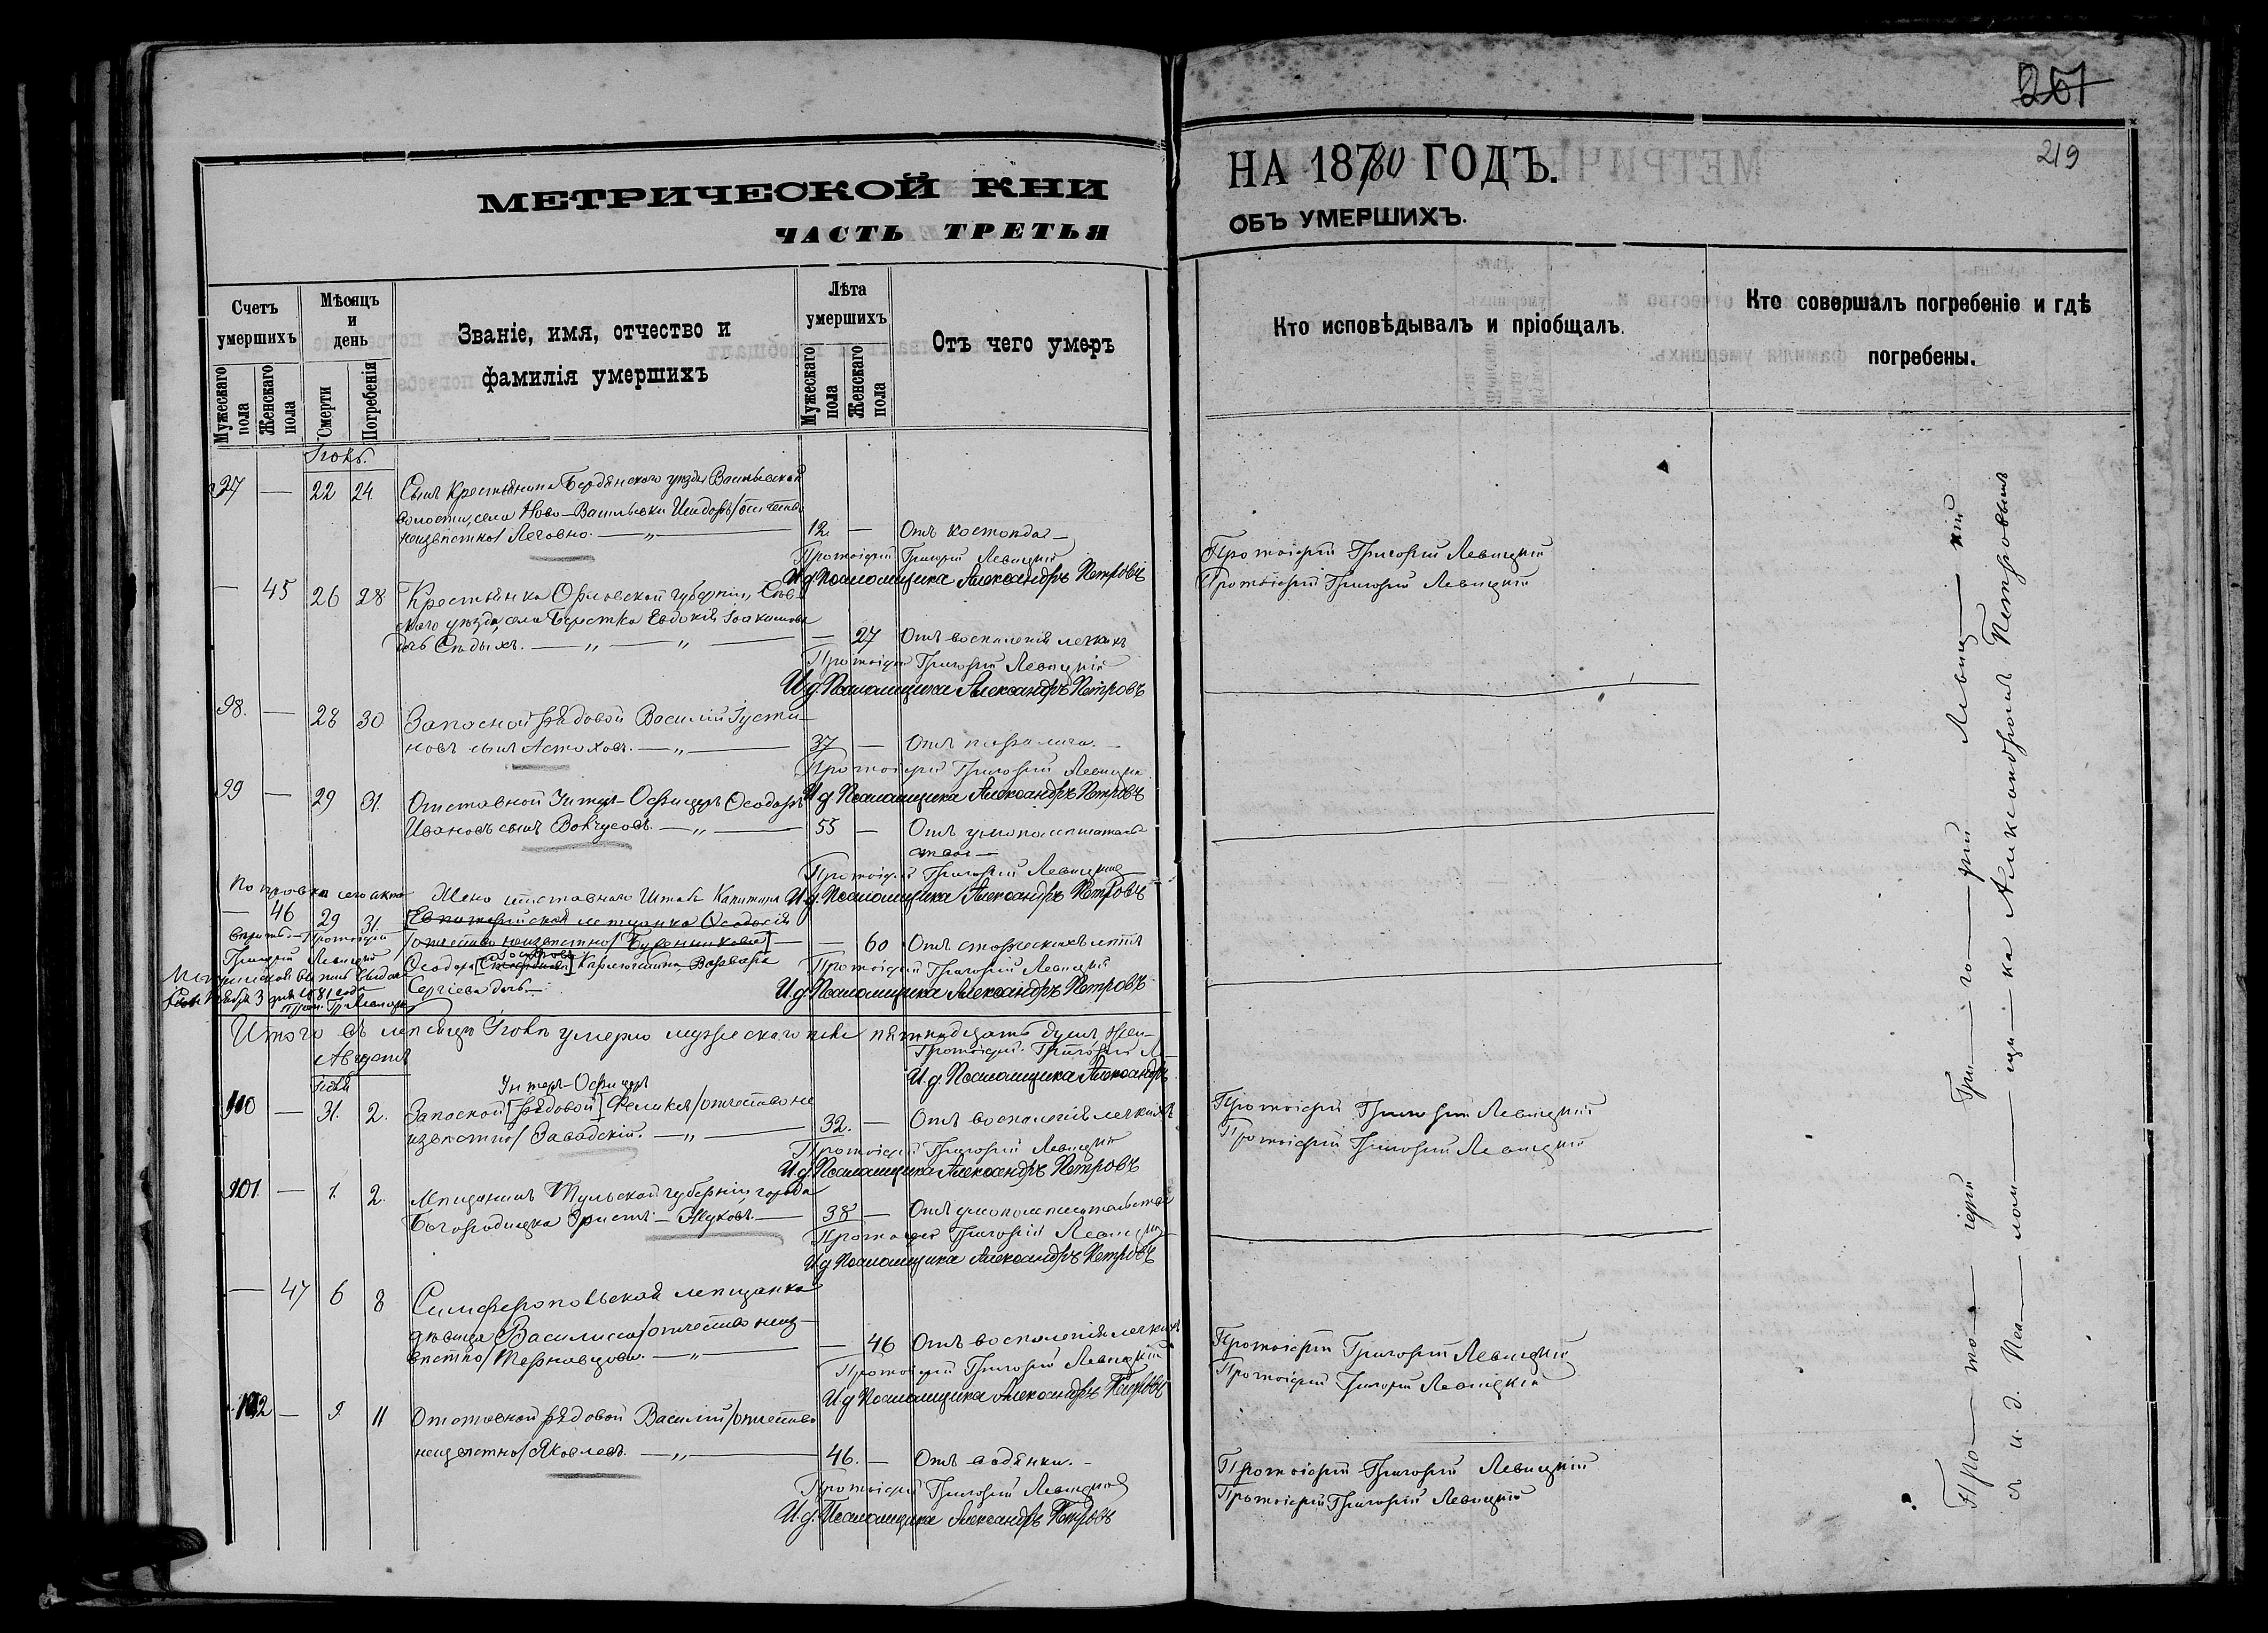 МЕТРИЧЕСКОЙ КНИ
ЧАСТЬ ТРЕТЬЯ
Счетъ умершихъ
Мужескаго пола
Женскаго пола
Мѣсяцъ и день
Смерти
Погребенія
Званіе, имя, отчество и
фамилія умершихъ
Лѣта умершихъ
Мужескаго пола
Женскаго пола
Отъ чего умеръ
Іюль.
97 — 22 24 Сынъ крестьянина Бердянскаго уѣзда Васильевской
волости, села Ново-Васильевки Исидоръ /отчество
неизвѣстно/ Леговно. — „ — 12. — Отъ костоѣда —
Протоіерей Григорій Левицкій
И.д. Псаломщика Александръ Петровъ
— 45 26 28 Крестьянка Орловской губерніи,
скаго уѣзда, села Берестка Евдокія Іоакимова
дочь Сѣдыхъ. — „ — „ — — 27 Отъ воспаленія легкихъ
Протоіерей Григорій Левицкій
И.д. Псаломщика Александръ Петровъ
98. — 28 30 Запасной рядовой Василій Іусти-
новъ сынъ Астаховъ. — „ — 37 — Отъ паралича. —
Протоіерей Григорій Левицкій
И.д. Псаломщика Александръ Петровъ
99 — 29 31. Отставной Унтеръ-Офицеръ Ѳеодоръ
Ивановъ сынъ — „ — 55 — Отъ умопомѣшатель-
ства —
Протоіерей Григорій Левицкій
И.д. Псаломщика Александръ Петровъ
Поправка сего акта Жена отставнаго Штабсъ Капитана
— 46 29 31. [Евпаторійская мѣщанка Ѳеодосія
вѣрить. — Протоіерей /отчество неизвѣстно/ Буренникова] — — 60 Отъ старческихъ лѣтъ
Григорій Левицкій Ѳеодора Варвара
Сергіева дочь. —
Протоіерей Григорій Левицкій
И.д. Псаломщика Александръ Петровъ
Итого въ мѣсяцѣ Іюлѣ умерло мужескаго пола пятнадцать душъ, жен-
Протоіерей Григорій Л-
И.д. Псаломщика Александръ
Августъ
Іюль
Унтеръ-Офицеръ
100 — 31. 2. Запасной [рядовой] Феликсъ /отчество не
извѣстно/ Завадскій. — „ — 32. — Отъ воспаленія легкихъ
Протоіерей Григорій Левицкій
И.д. Псаломщика Александръ Петровъ
101 — 1. 2. Мѣщанинъ Тульской губерніи города
Богородицка — Жуковъ. — 38 — Отъ умопомѣшательства
Протоіерей Григорій Левицкій
И.д. Псаломщика Александръ Петровъ
— 47 6 8 Симферопольская мѣщанка
дѣвица Василиса /отчество неиз-
вѣстно/ Терновцова. — „ — — 46 Отъ воспаленія легкихъ
Протоіерей Григорій Левицкій
И.д. Псаломщика Александръ Петровъ
102 — 9. 11 Отставной рядовой Василій /отчество
неизвѣстно/ Яковлевъ. — „ — 46. — Отъ водянки. —
Протоіерей Григорій Левицкій
И.д. Псаломщика Александръ Петровъ
261
219
НА 18780 ГОДЪ.
ОБЪ УМЕРШИХЪ.
Кто исповѣдывалъ и пріобщалъ.
Кто совершалъ погребеніе и гдѣ
погребены.
Протоіерей Григорій Левицкій
Протоіерей Григорій Левицкій
Протоіерей Григорій Левицкій
Протоіерей Григорій Левицкій
Протоіерей Григорій Левицкій
Протоіерей Григорій Левицкій
Протоіерей Григорій Левицкій
Протоіерей Григорій Левицкій
Про — то — іерей Гри — го — рій Левиц — кій
съ и. д. Пса — лом — щи — ка Александромъ Петровымъ